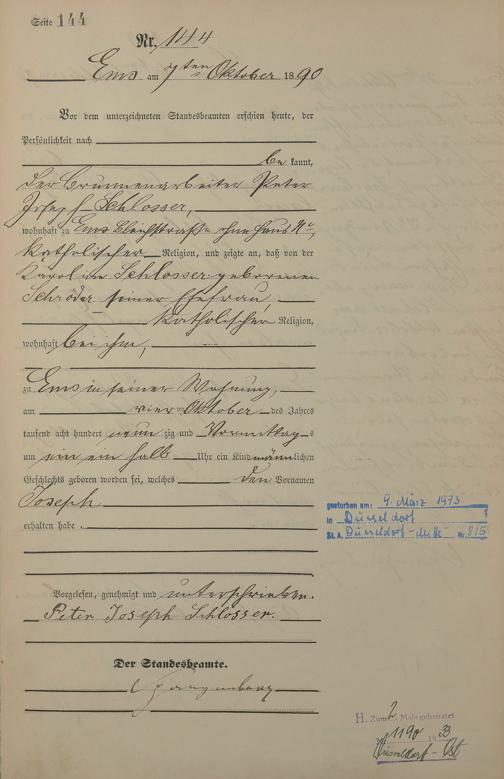 Seite 144
Nr. 144
Ems am 7ten Oktober 1890
Vor dem unterzeichneten Standesbeamten erschien heute, der
Persönlichkeit nach
be kannt,
der Brunnenarbeiter Peter
Joseph Schlosser,
wohnhaft zu Ems Bleichstraße ohne Haus Nr,
katholischer Religion, und zeigte an, daß von der
Karoline Schlosser geborenen
Schröder seiner Ehefrau,
katholischer Religion,
wohnhaft bei ihm,
zu Ems in seiner Wohnung,
am vier Oktober des Jahres
tausend acht hundert neun zig und Vormittags
um ein ein halb Uhr ein Kind männlichen
Geschlechts geboren worden sei, welches den Vornamen
Joseph
erhalten habe.
Vorgelesen, genehmigt und unterschrieben.
Peter Joseph Schlosser.
Der Standesbeamte.
gestorben am: 9. März 1973
in Düsseldorf
St. A. Düsseldorf-Mitte Nr. 815
H. Zum 2. Male geheiratet
1190 1933
Düsseldorf-Ost